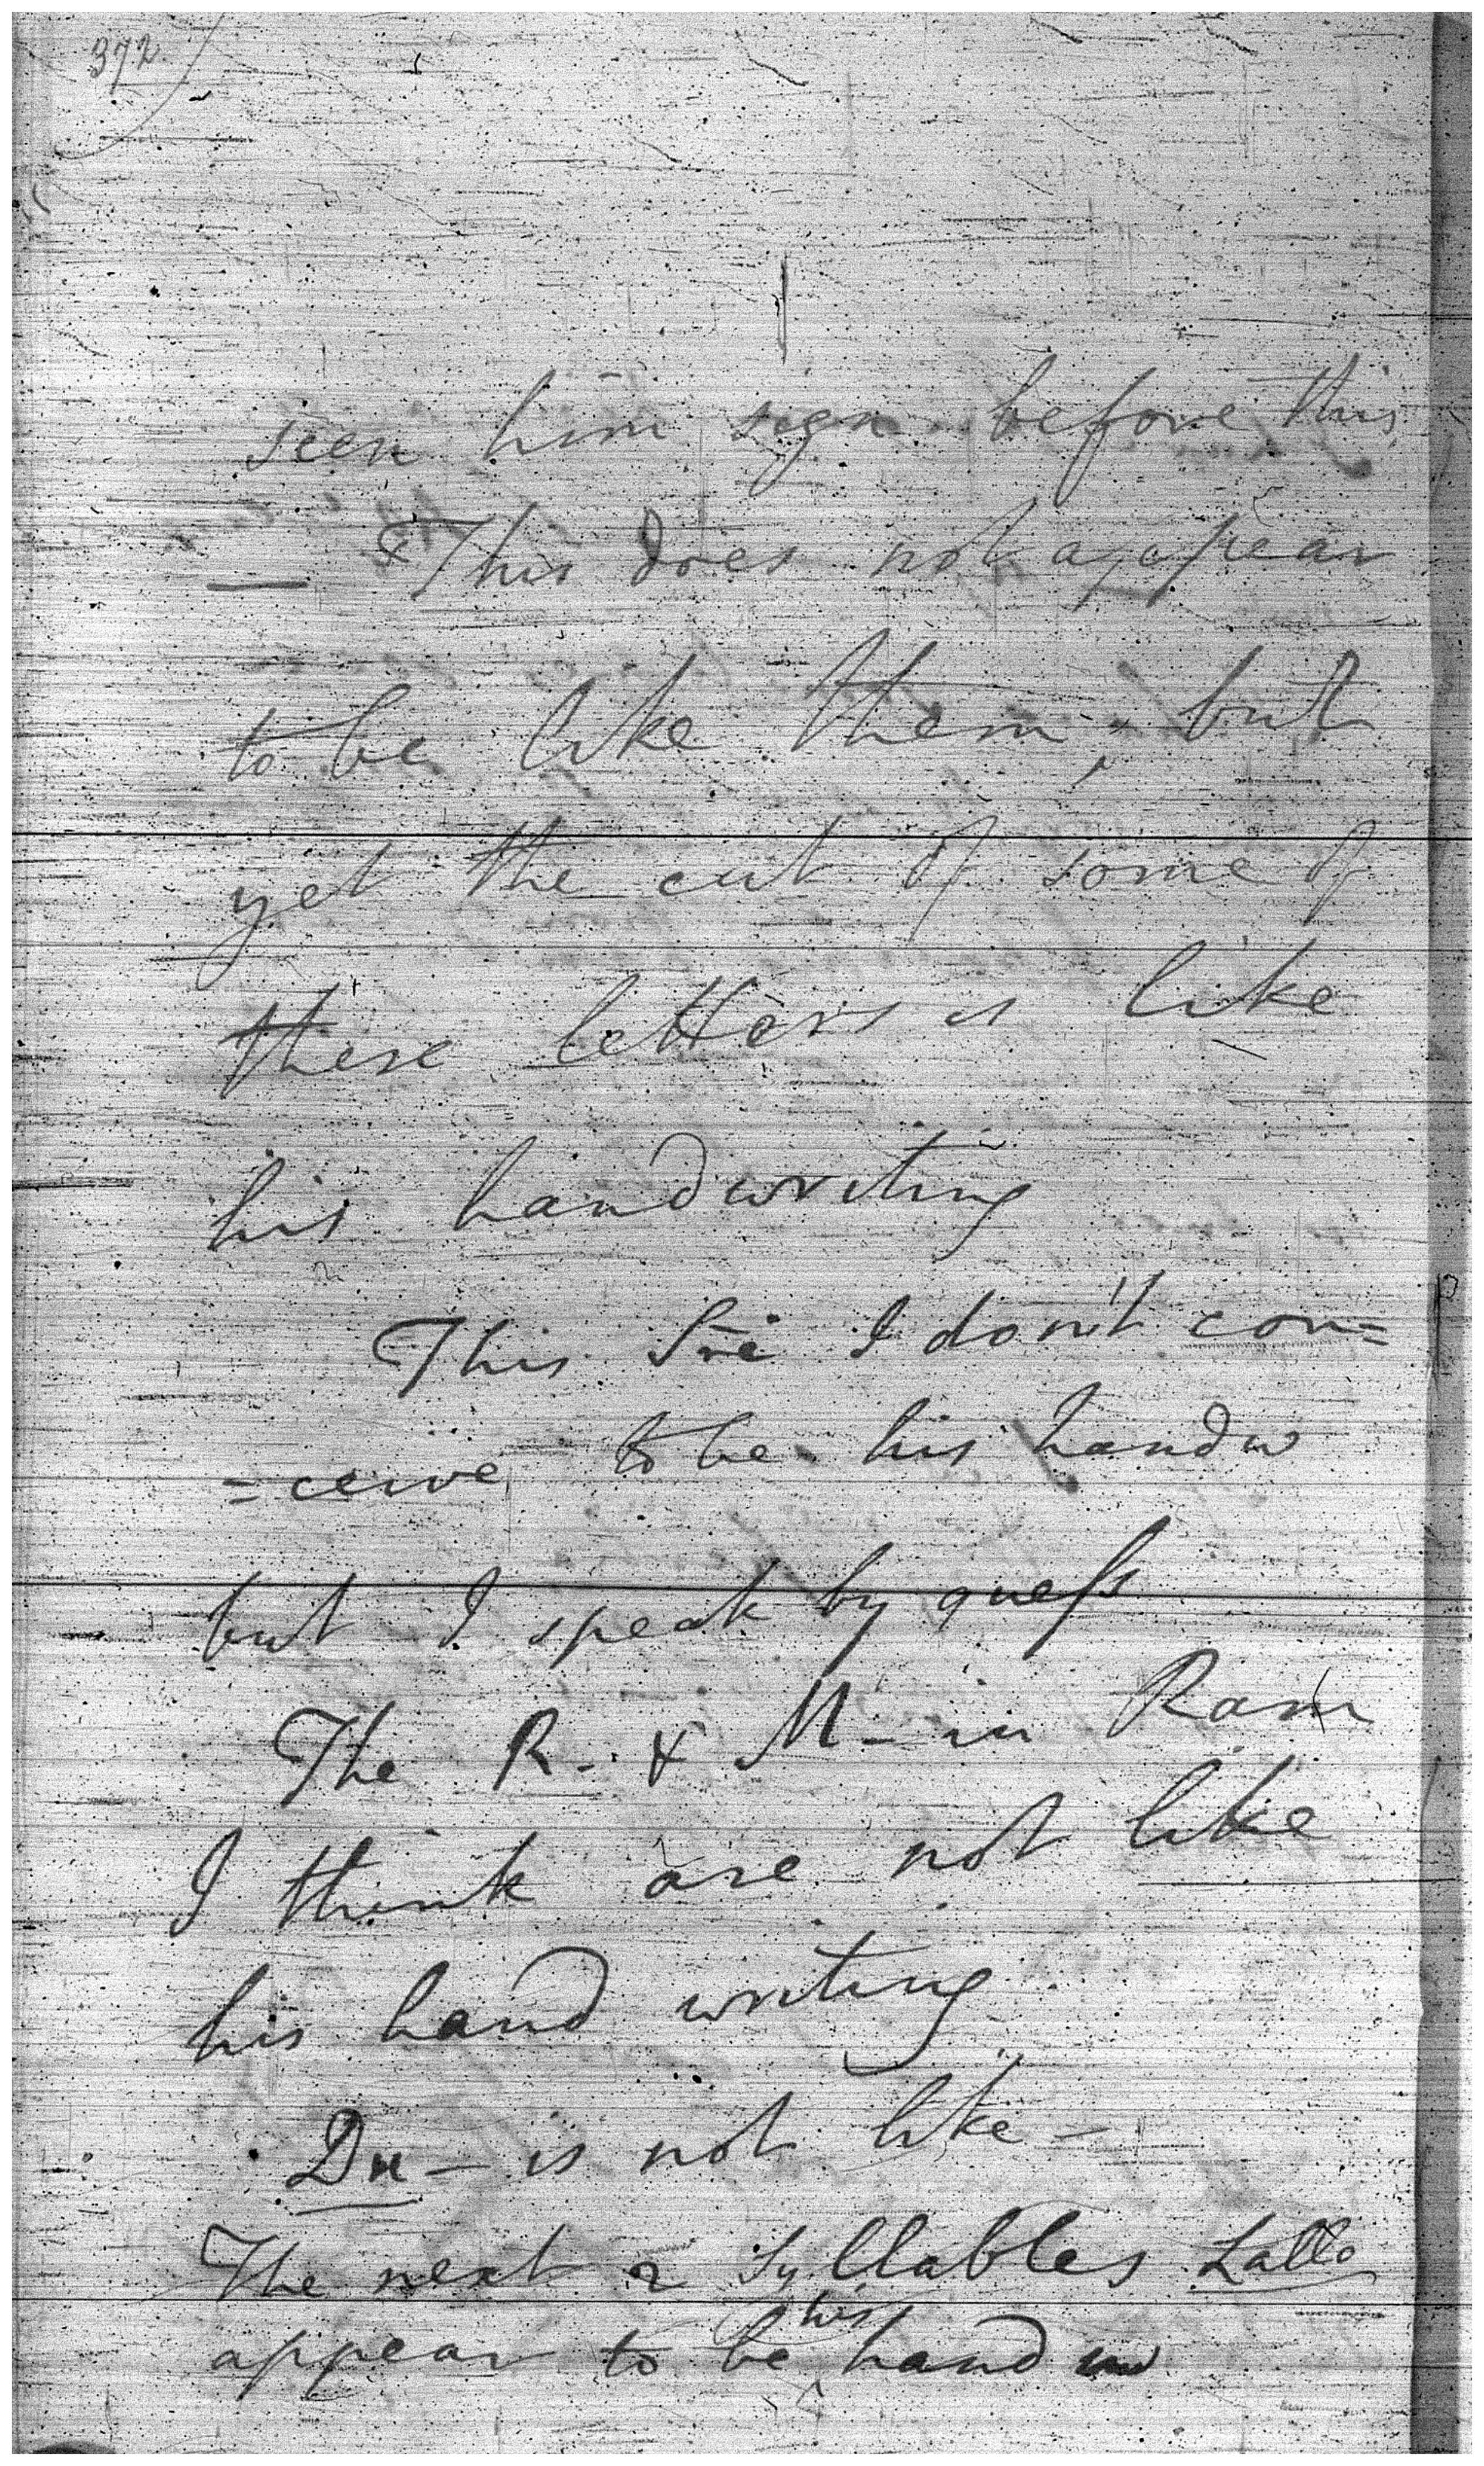 372.
seen him sign before this
— & This does not appear
to be like them, but
yet the cut of some of
these letters is like
his handwriting
This Sre I don't con=
=ceive to be his handw
but I speak by guess
The R. & M - in Ram
I think are not like
his hand writing
Du - is not like -
The next 2 syllables Lallo
his
appear to be hand w